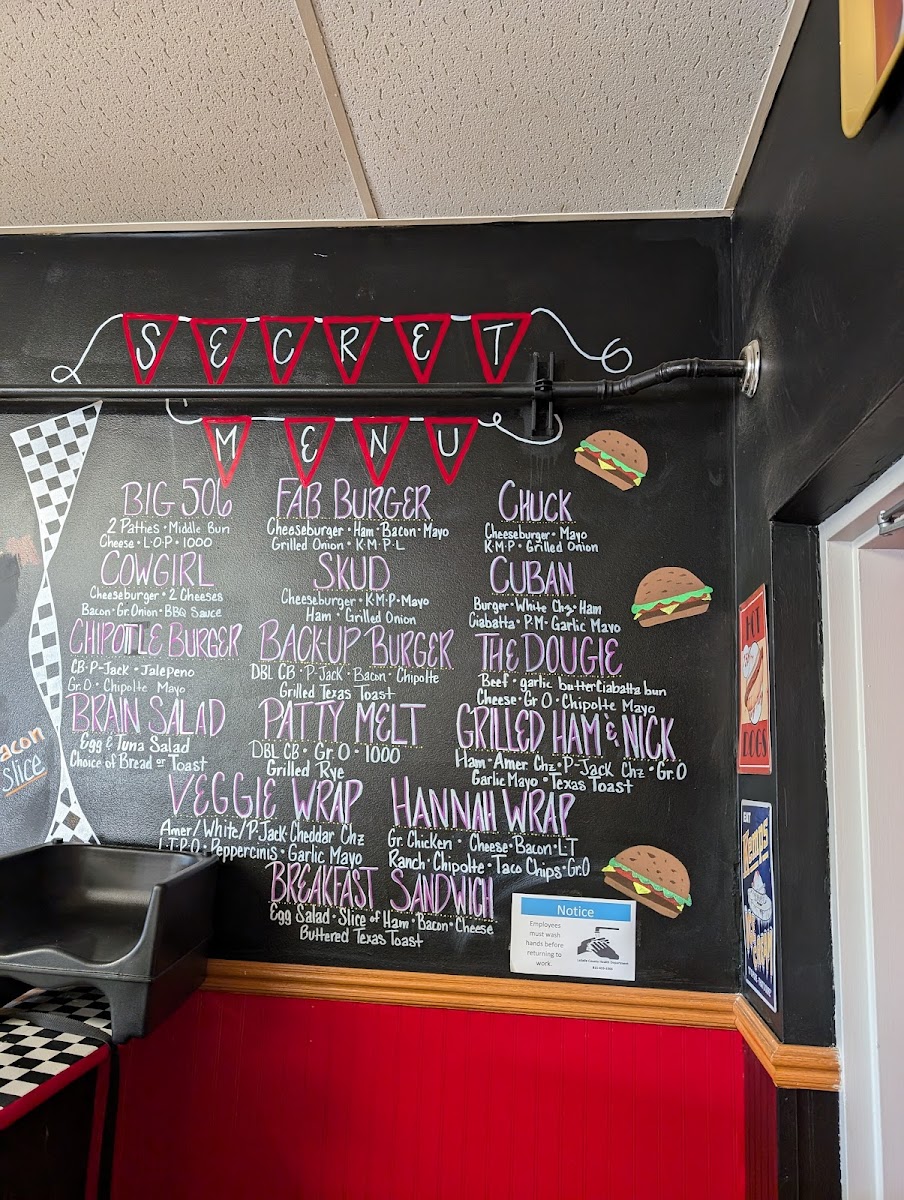 SECRET
MENU
BIG 506
2 Patties • Middle Bun
Cheese • L•O•P • 1000
FAB BURGER
Cheeseburger • Ham • Bacon • Mayo
Grilled Onion • K•M•P•L
CHUCK
Cheeseburger • Mayo
K•M•P • Grilled Onion
COWGIRL
Cheeseburger • 2 Cheeses
Bacon • Gr.Onion • BBQ Sauce
SKUD
Cheeseburger • K•M•P•Mayo
Ham • Grilled Onion
CUBAN
Burger • White Chz • Ham
Ciabatta • P•M • Garlic Mayo
CHIPOTLE BURGER
CB • P-Jack • Jalepeno
Gr.O • Chipolte Mayo
BACK-UP BURGER
DBL CB • P-Jack • Bacon • Chipolte
Grilled Texas Toast
THE DOUGIE
Beef • garlic butter Ciabatta bun
Cheese • Gr.O • Chipolte Mayo
BRAIN SALAD
Egg & Tuna Salad
Choice of Bread or Toast
PATTY MELT
DBL CB • Gr.O • 1000
Grilled Rye
GRILLED HAM & NICK
Ham • Amer Chz • P-Jack Chz • Gr.O
Garlic Mayo • Texas Toast
VEGGIE WRAP
Amer/White/P-Jack Cheddar Chz
L•T•P•O • Peppercinis • Garlic Mayo
HANNAH WRAP
Gr. Chicken • Cheese • Bacon • L•T
Ranch • Chipolte • Taco Chips • Gr.O
BREAKFAST SANDWICH
Egg Salad • Slice of Ham • Bacon • Cheese
Buttered Texas Toast
acon
slice
Notice
Employees
must wash
hands before
returning to
work.
HOT
DOGS
EAT